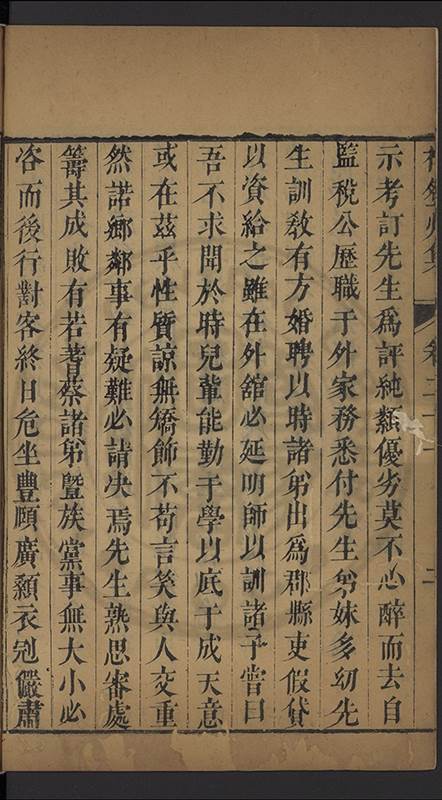 示考訂先生爲評純纇優劣莫不心醉而去自
監稅公歷職于外家務悉付先生弟妹多幼先
生訓敎有方婚聘以時諸弟出爲郡縣吏假貸
以資給之雖在外舘必延明師以訓諸子嘗曰
吾不求聞於時兒輩能勤于學以底于成天意
或在茲乎性質諒無矯飾不苟言笑與人交重
然諾鄉鄰事有疑難必請決焉先生熟思審處
籌其成敗有若蓍蔡諸弟曁族黨事無大小必
咨而後行對客終日危坐豐頤廣顙衣冠儼肅